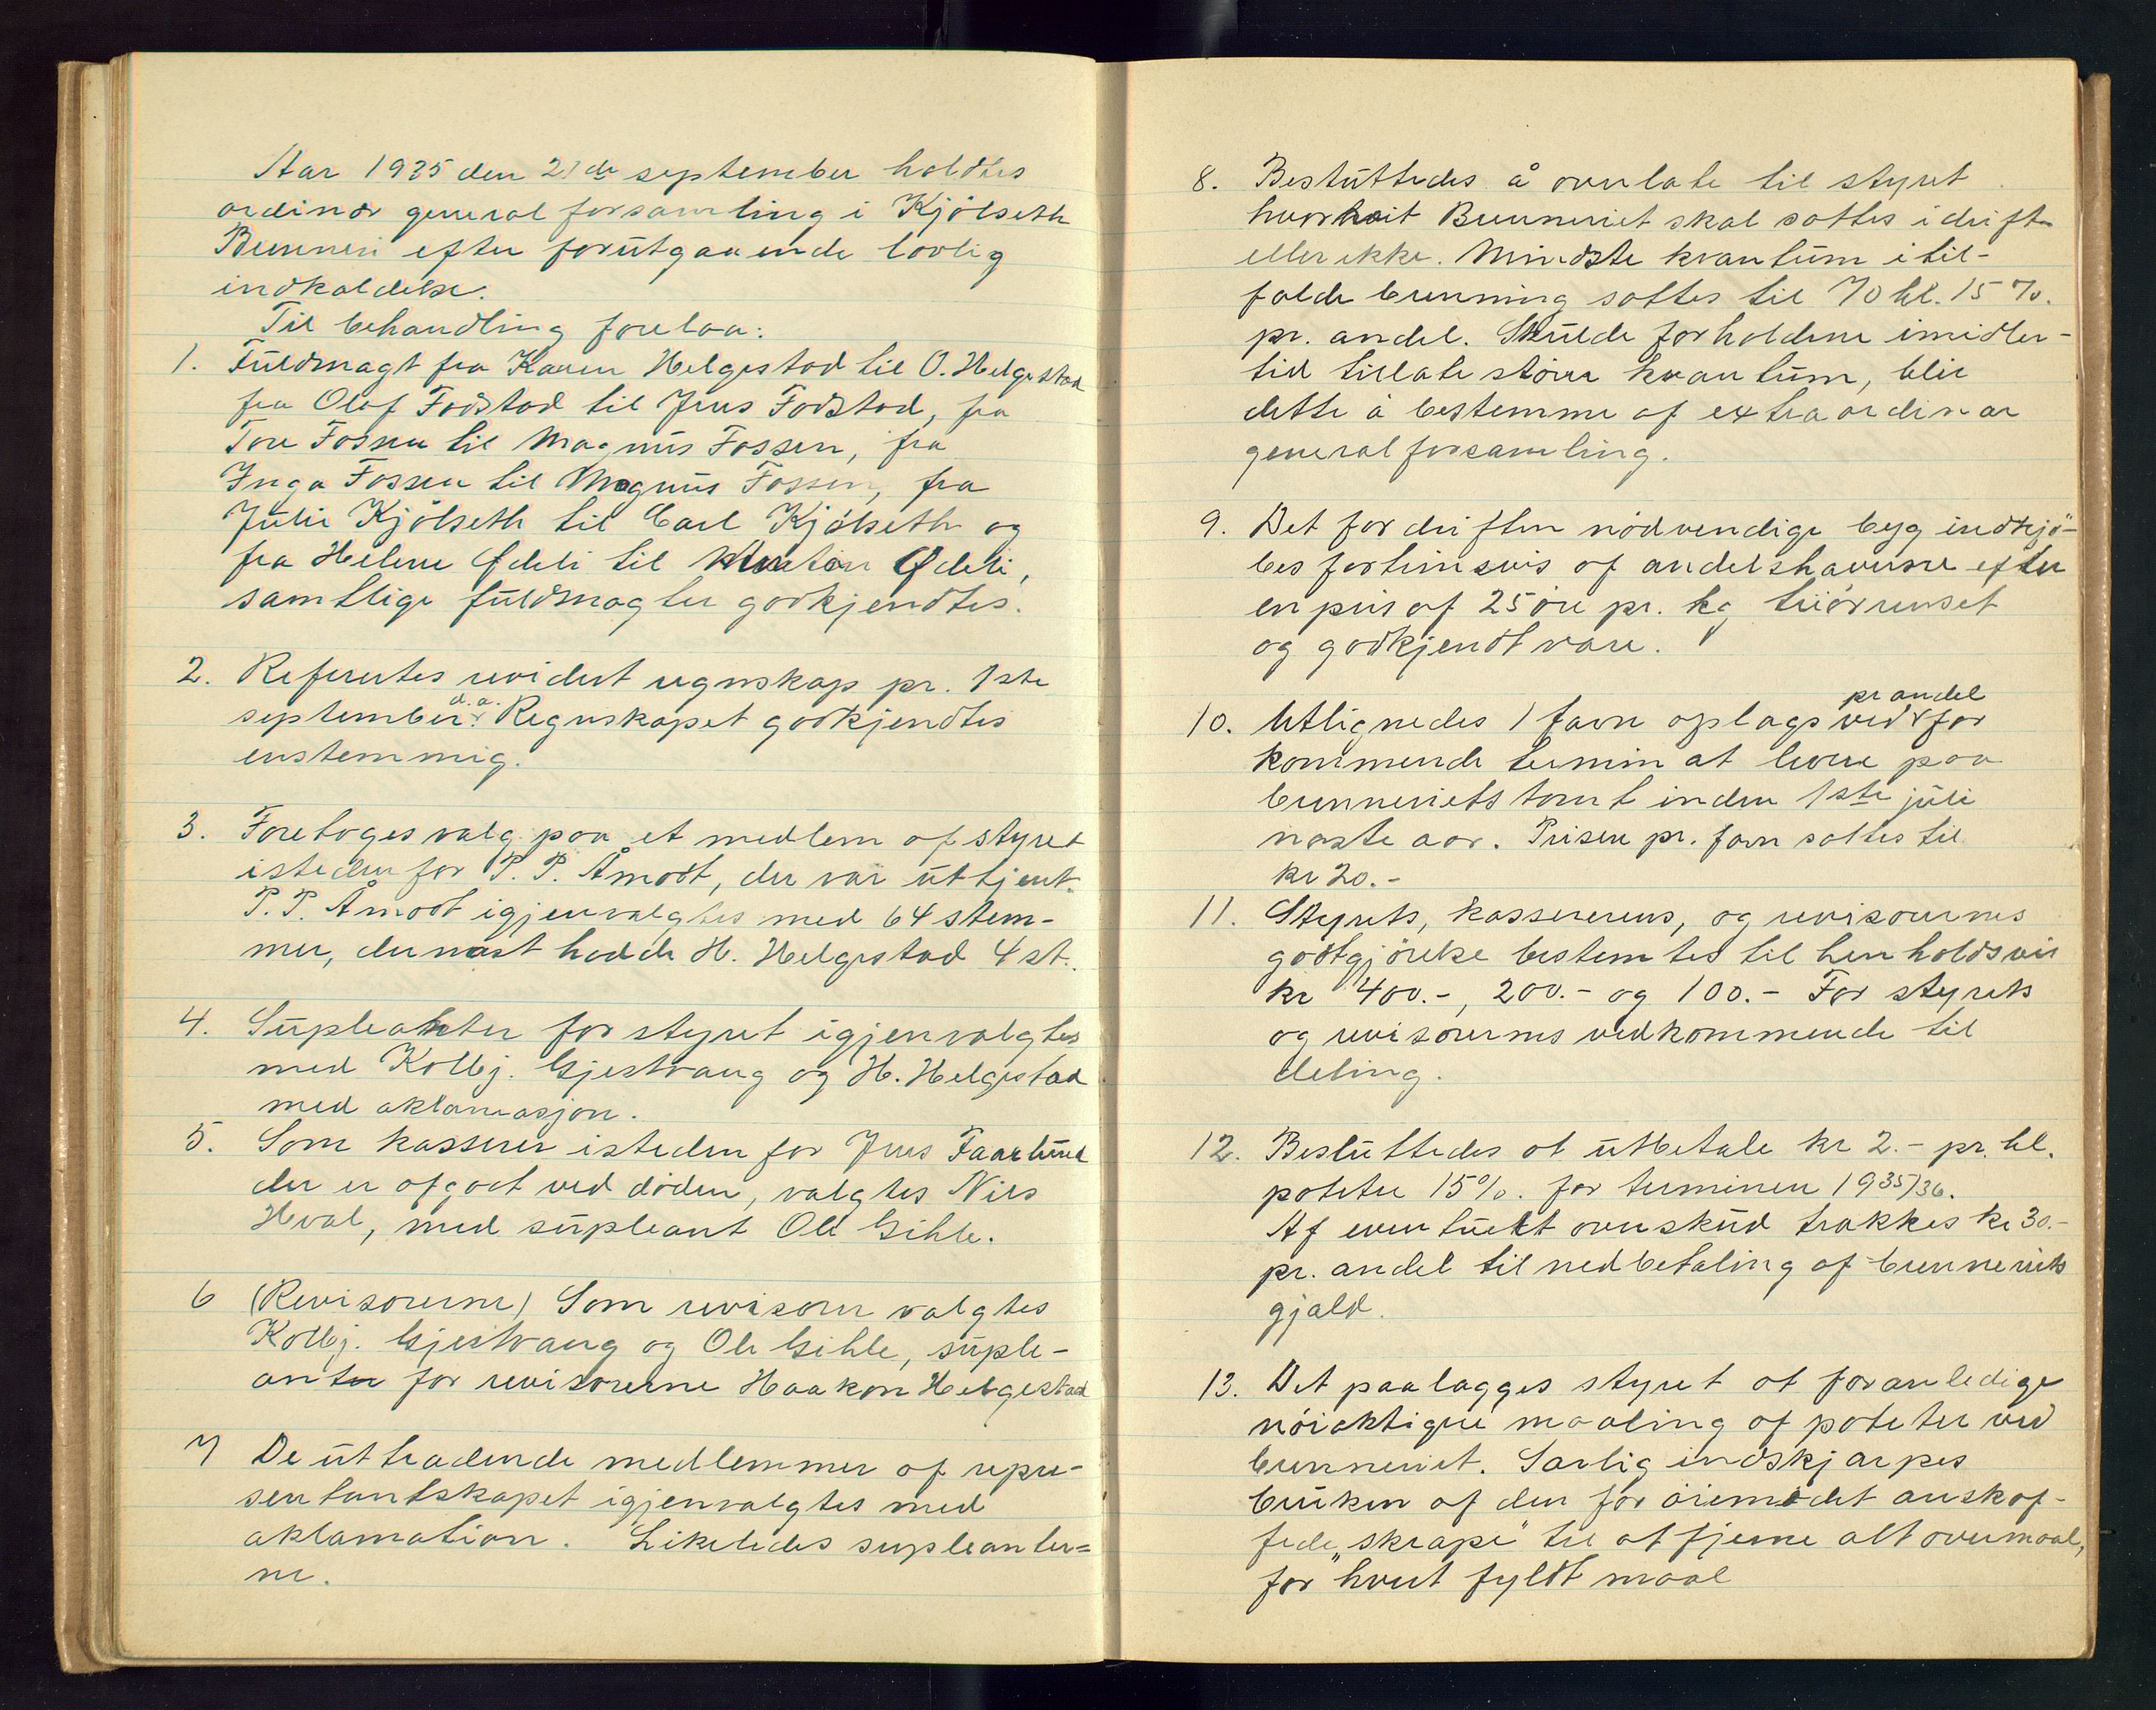 Aar 1935 den 21de september holdtes
ordinær generalforsamling i Kjölseth
Brenneri efter forutgaaende lovlig
indkaldelse.
Til behandling forelaa:
1. Fuldmagt fra Karen Helgestad til O. Helgestad
fra Olaf Fodstad til Jens Fodstad, fra
Tore Fossen til Magnus Fossen, fra
Inga Fossen til Magnus Fossen, fra
Julie Kjölseth til Carl Kjölseth og
fra Helene Ødeli til Ødeli,
samtlige fuldmagter godkjendtes.
2. Referertes revidert regnskap pr. 1ste
september d.a. Regnskapet godkjendtes
enstemmig.
3. Foretoges valg paa et medlem af styret
istedenfor P. P. Åmodt, der var uttjent.
P. P. Åmodt igjenvalgtes med 64 stem-
mer, dernæst hadde H. Helgestad 4 st.
4. Supleanter for styret igjenvalgtes
med Kolbj. Gjestvang og H. Helgestad
med aklamasjon.
5. Som kasserer istedenfor Jens Faarlund
der er afgaat ved döden, valgtes Nils
Hval, med supleant Ole Gihle.
6 (Revisorerne) Som revisorer valgtes
Kolbj. Gjestvang og Ole Gihle, suple-
anter for revisorerne Haakon Helgestad
7 De uttrædende medlemmer af repre-
sentantskapet igjenvalgtes med
aklamation. Likeledes supleanter=
ne.
8. Besluttedes å overlate til styret
hvorvidt Brenneriet skal sættes i drift
eller ikke. Mindste kvantum i til-
fælde brenning sattes til 70 hl. 15 %.
pr. andel. Skulde forholdene imidler-
tid tillate större kvantum, blir
dette å bestemme af extraordinær
generalforsamling.
9. Det for driften nödvendige byg indkjö-
bes fortrinsvis af andelshaverne efter
en pris af 25 öre pr. kg törrenset
og godkjendt vare.
10. Utlignedes 1 favn oplagsved pr andel for
kommende termin at levere paa
brenneriets tomt inden 1ste juli
næste aar. Prisen pr. favn sattes til
kr 20.-
11. Styrets, kassererens, og revisorernes
godtgjörelse bestemtes til henholdsvis
kr 400.-, 200.- og 100.- For styrets
og revisorernes vedkommende til
deling.
12. Besluttedes at utbetale kr 2.- pr. hl.
poteter 15%. for terminen 1935/36.
Af eventuelt overskud trækkes kr 30.-
pr. andel til nedbetaling af brenneriets
gjæld.
13. Det paalægges styret at foranledige
nöiaktigere maaling af poteter ved
brenneriet. Særlig indskjærpes
bruken af den for öiemedet anskaf-
fede „skrape" til at fjerne alt overmaal,
for hvert fyldt maal